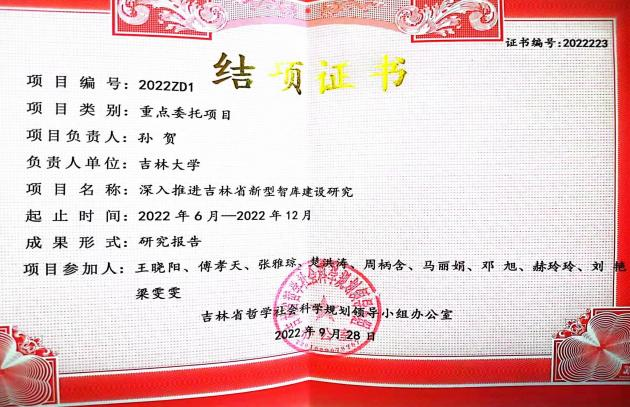 证书编号:2022223
结项证书
项目编号:2022ZD1
项目类别:重点委托项目
项目负责人:孙 贺
负责人单位:吉林大学
项目名称:深入推进吉林省新型智库建设研究
起止时间:2022年6月—2022年12月
成果形式:研究报告
项目参加人:王晓阳、傅孝天、张雅琼、楚洪涛、周柄含、马丽娟、邓 旭、赫玲玲、刘 艳
梁雯雯
吉林省哲学社会科学规划领导小组办公室
2022年9月28日